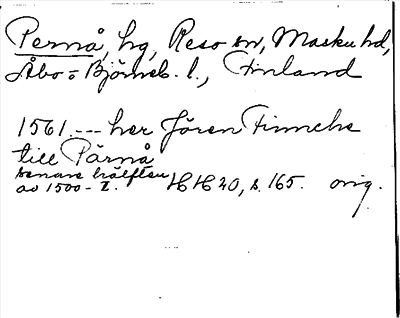 Pernå, hg, Reso sn, Masku hd,
Åbo = Björneb. l., Finland
1561. --- her Jören Finncke
till Pärnå
senare hälften
av 1500-t. HH 20, s. 165. orig.